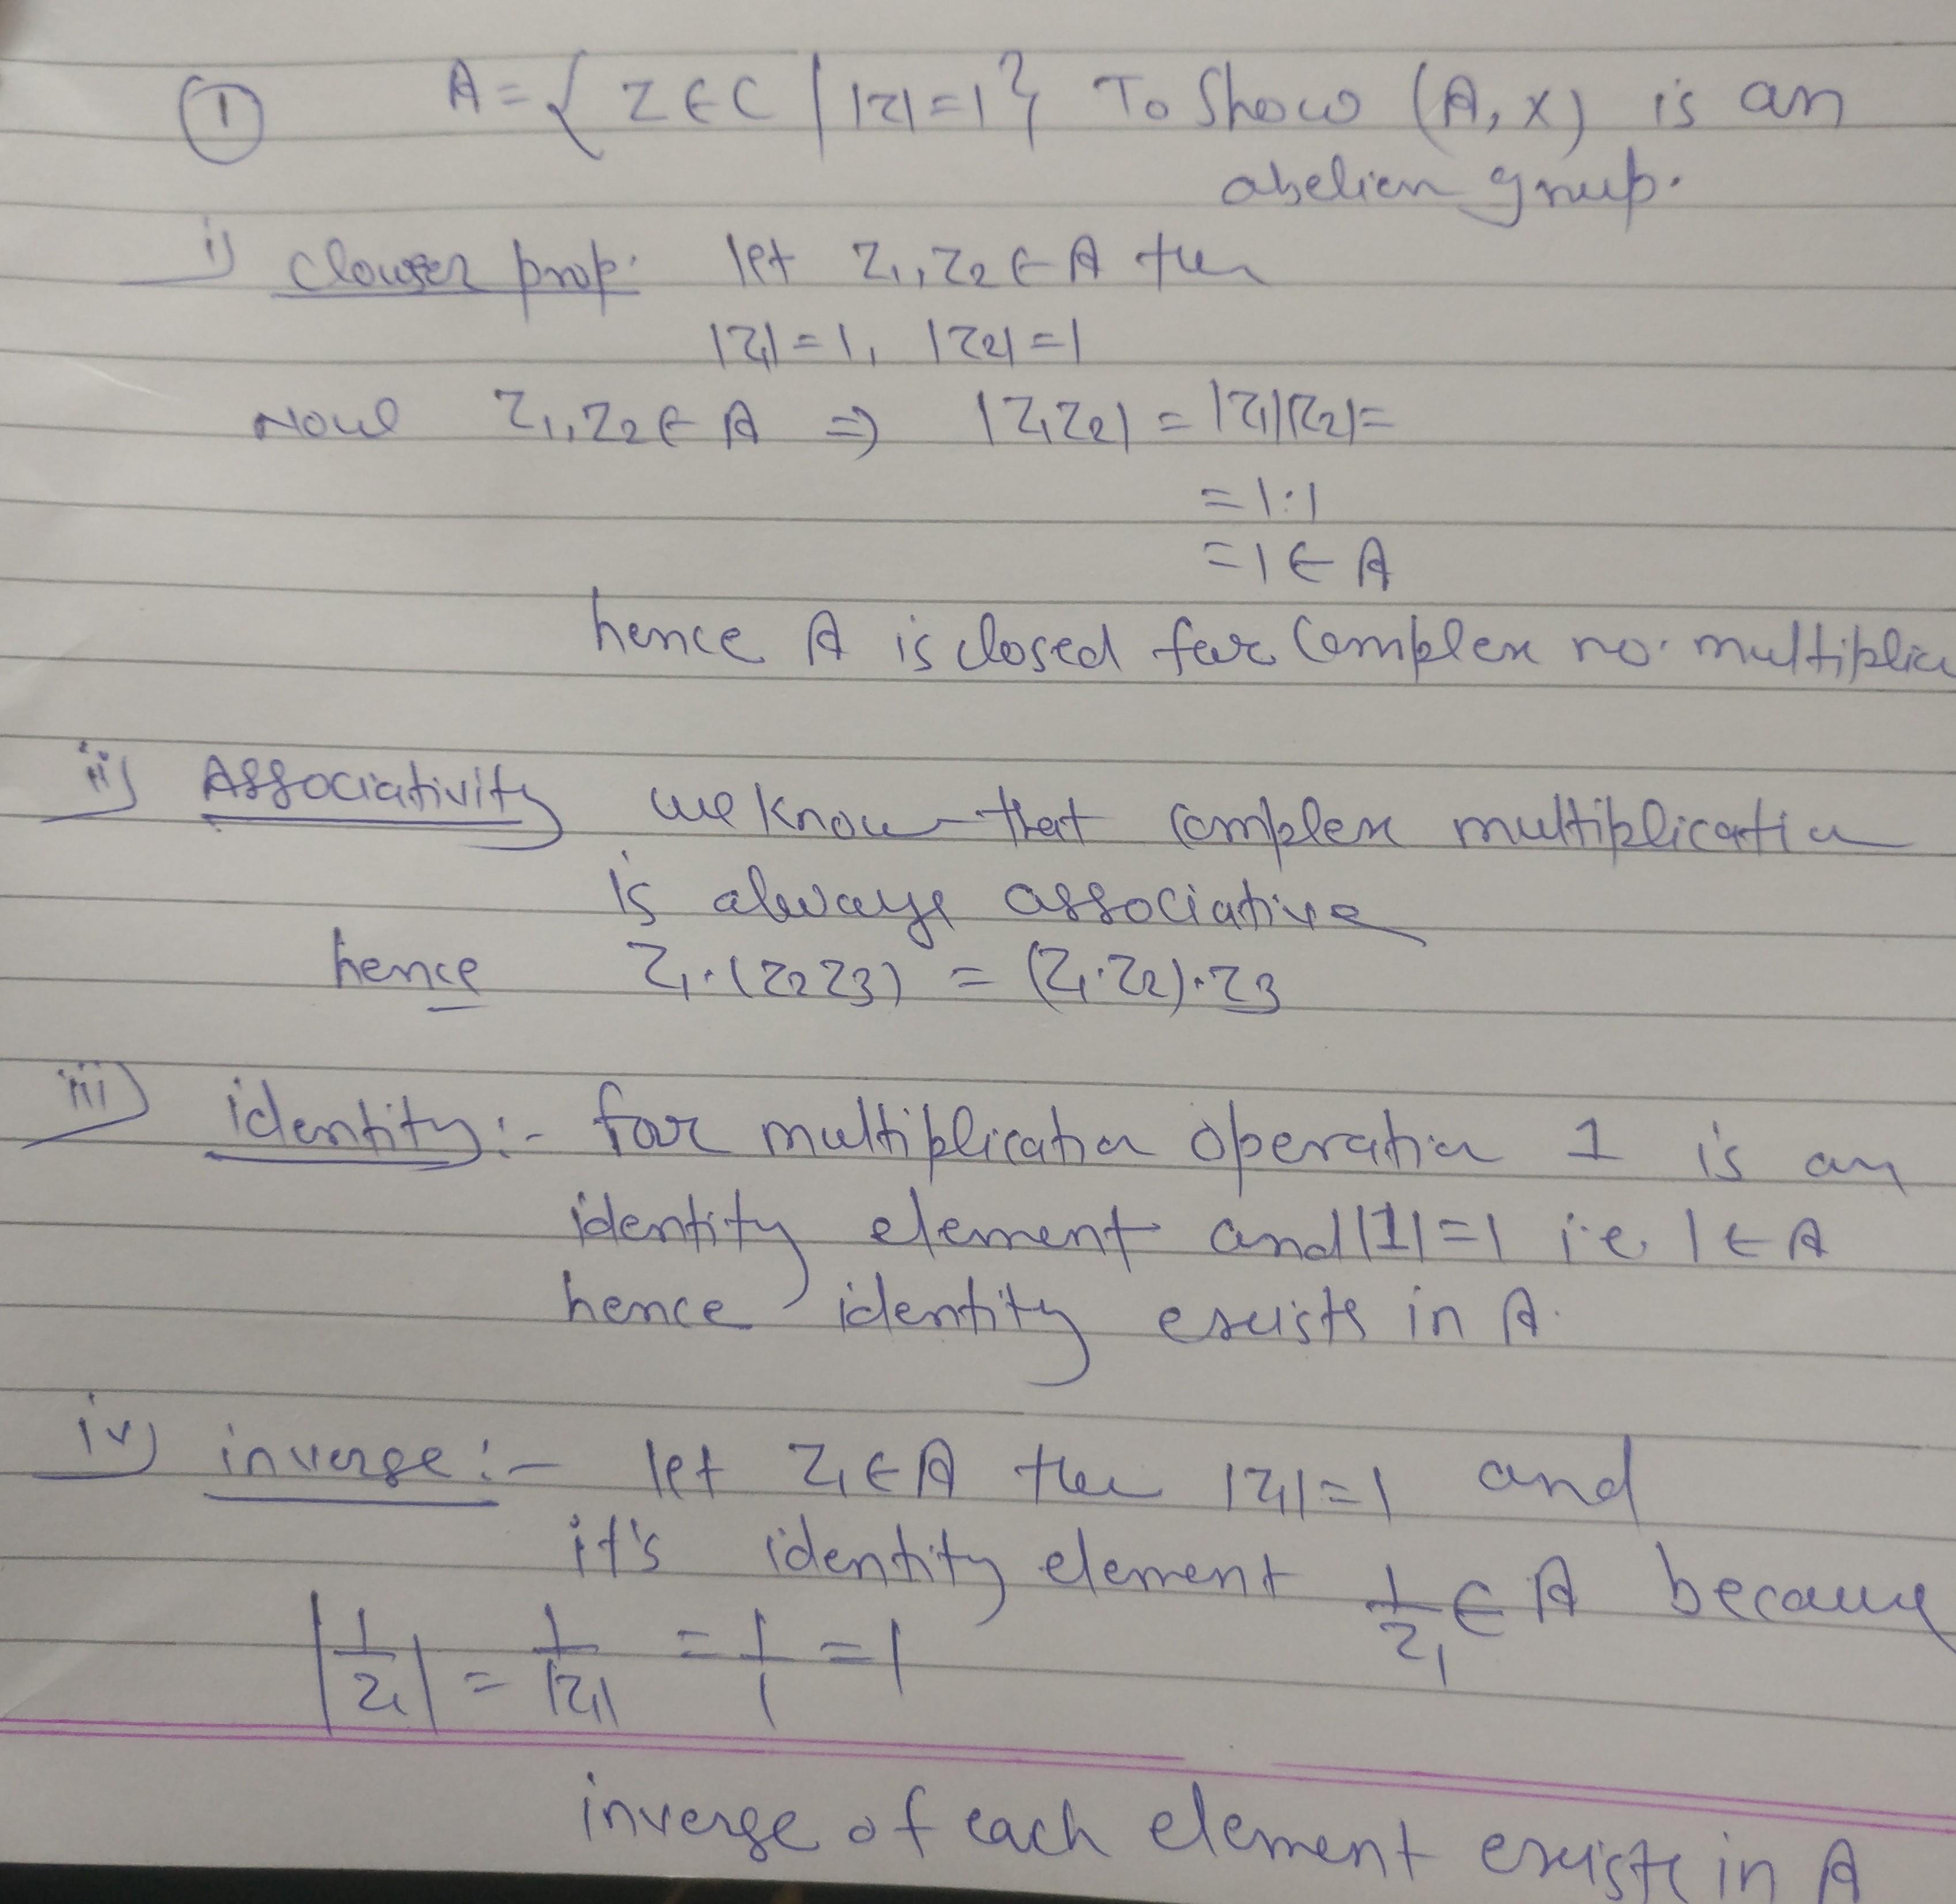 ① A = { Z ∈ C | |z| = 1 } To Show (A, x) is an
abelian group.
i) Clouser prop. let Z₁, Z₂ ∈ A then
|z₁| = 1, |z₂| = 1
Now Z₁, Z₂ ∈ A ⇒ |Z₁Z₂| = |z₁||z₂| =
= 1·1
= 1 ∈ A
hence A is closed for Complex no. multiplic
ii) Associativity we know that complex multiplication
is always associative
hence Z₁·(z₂z₃) = (Z₁·Z₂)·Z₃
iii) identity:- for multiplication operation 1 is an
identity element and |1| = 1 i.e. 1 ∈ A
hence identity exists in A.
iv) inverse:- let Z₁ ∈ A then |z₁| = 1 and
it's identity element 1/z₁ ∈ A because
|1/z₁| = 1/|z₁| = 1/1 = 1
inverse of each element exists in A